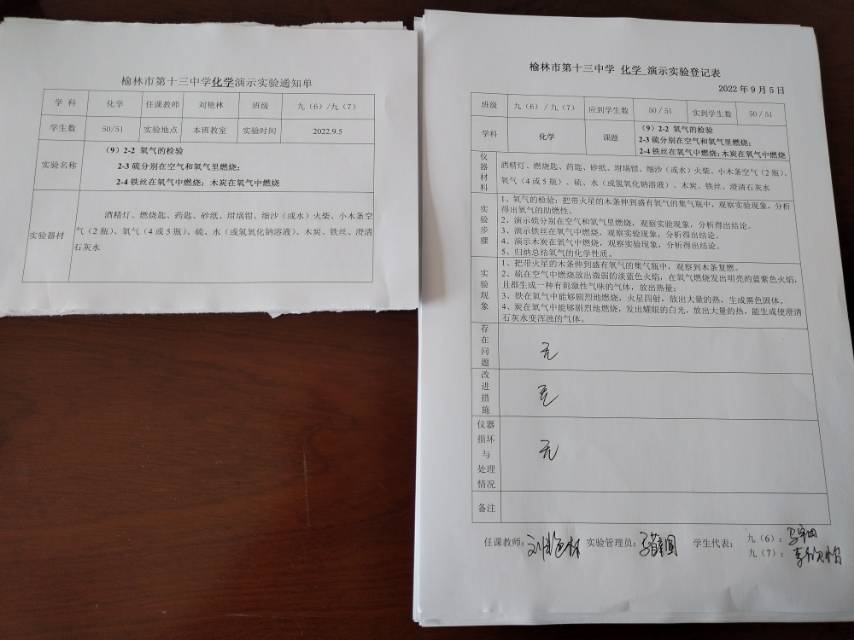 榆林市第十三中学化学演示实验通知单
学 科 化学 任课教师 刘艳林 班级 九（6）/九（7）
学生数 50/51 实验地点 本班教室 实验时间 2022.9.5
实验名称
（9）2-2 氧气的检验
2-3 硫分别在空气和氧气里燃烧
2-4 铁丝在氧气中燃烧；木炭在氧气中燃烧
实验器材
酒精灯、燃烧匙、药匙、砂纸、坩埚钳、细沙（或水）火柴、小木条空
气（2 瓶）、氧气（4 或 5 瓶）、硫、水（或氢氧化钠溶液）、木炭、铁丝、澄清
石灰水
榆林市第十三中学 化学 演示实验登记表
2022 年 9 月 5 日
班级 九（6）/ 九（7） 应到学生数 50 / 51 实到学生数 50 / 51
学科 化学 课题
（9）2-2 氧气的检验
2-3 硫分别在空气和氧气里燃烧；
2-4 铁丝在氧气中燃烧；木炭在氧气中燃烧
仪器材料
酒精灯、燃烧匙、药匙、砂纸、坩埚钳、细沙（或水）火柴、小木条空气（2 瓶）、
氧气（4 或 5 瓶）、硫、水（或氢氧化钠溶液）、木炭、铁丝、澄清石灰水
实验步骤
1、氧气的检验：把带火星的木条伸到盛有氧气的集气瓶中，观察实验现象，分析
得出氧气的助燃性。
2、演示硫分别在空气和氧气里燃烧，观察实验现象，分析得出结论。
3、演示铁丝在氧气中燃烧，观察实验现象，分析得出结论。
4、演示木炭在氧气中燃烧，观察实验现象，分析得出结论。
5、归纳总结氧气的化学性质。
实验现象
1、把带火星的木条伸到盛有氧气的集气瓶中，观察到木条复燃。
2、硫在空气中燃烧放出微弱的淡蓝色火焰，在氧气燃烧发出明亮的蓝紫色火焰，
且都生成一种有刺激性气味的气体，放出热量；
3、铁在氧气中能够剧烈地燃烧，火星四射，放出大量的热，生成黑色固体。
4、炭在氧气中能够剧烈地燃烧，发出耀眼的白光，放出大量的热，能生成使澄清
石灰水变浑浊的气体。
存在问题 无
改进措施 无
仪器损坏与处理情况 无
备注
任课教师：刘艳林 实验管理员： 学生代表： 九（6）：
九（7）：